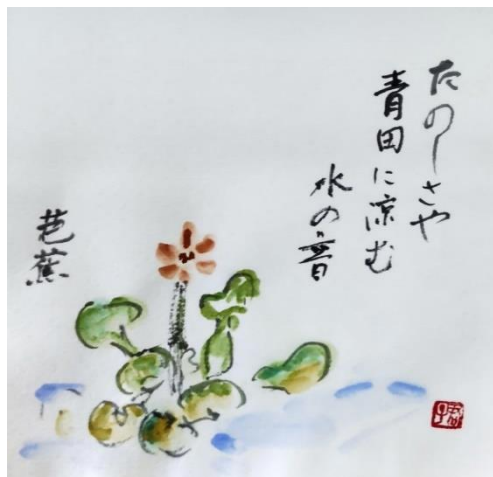 たのしさや
青田に涼む
水の音
芭蕉